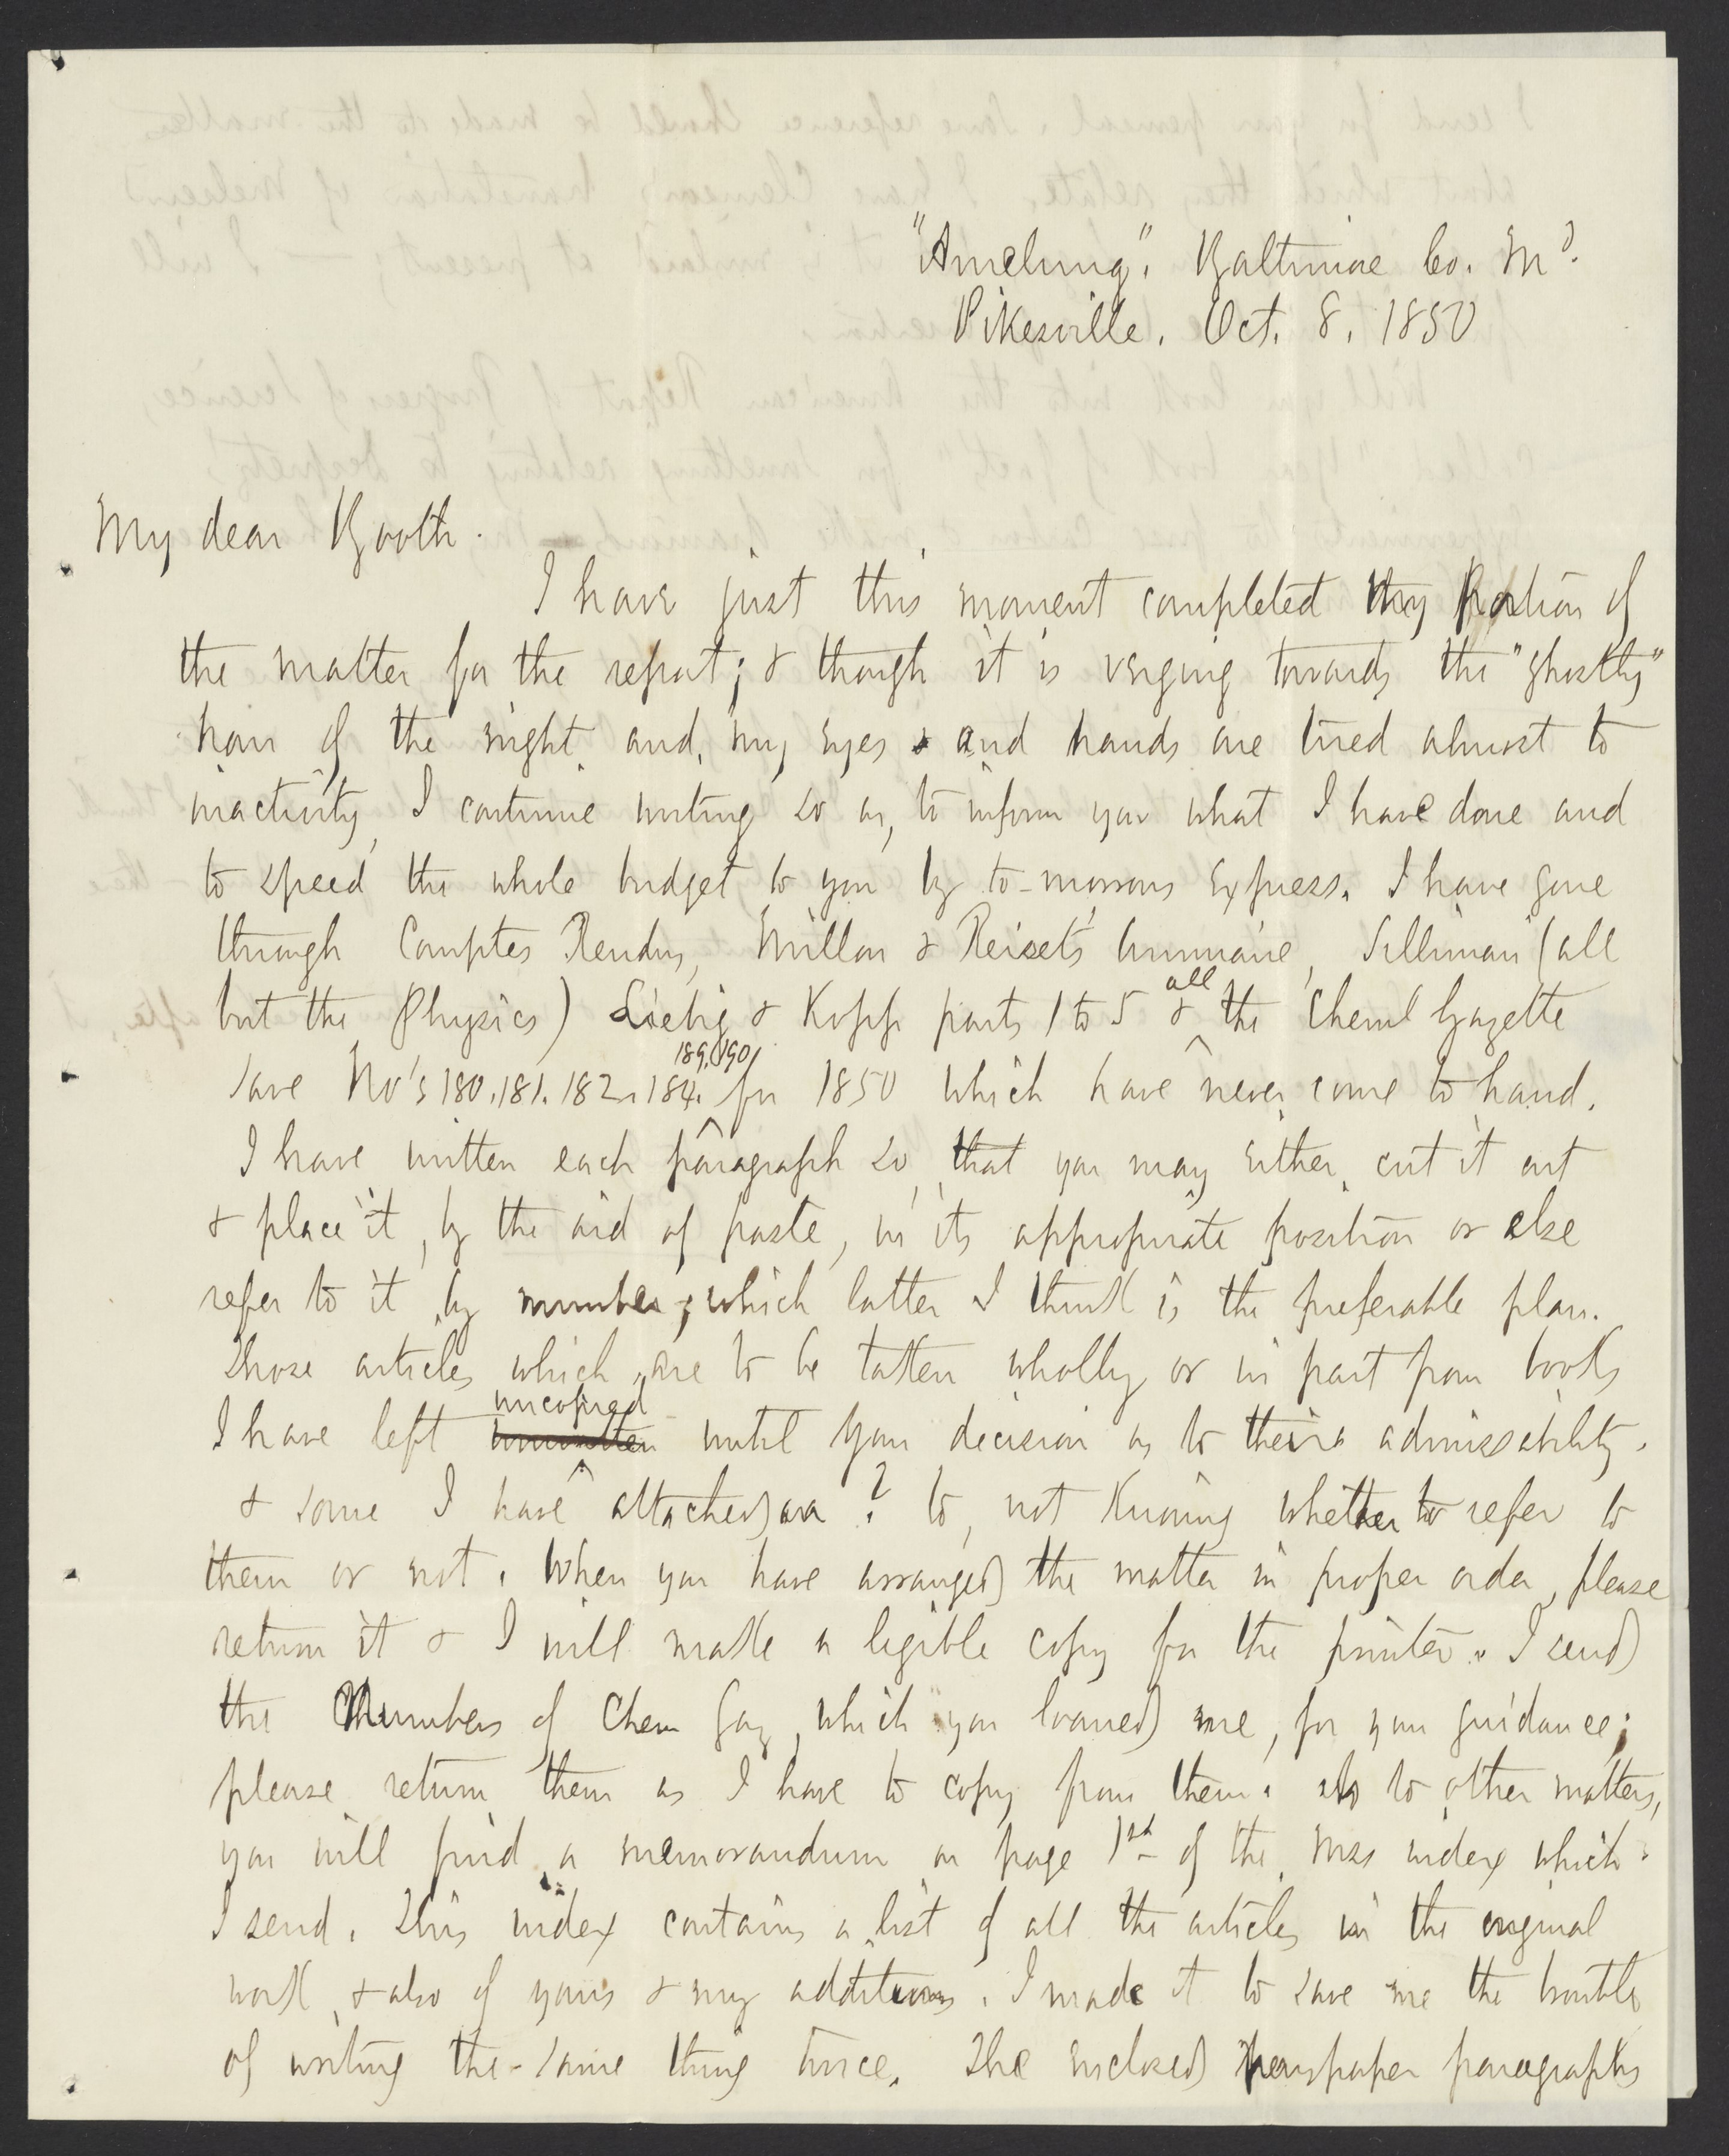 "Amelung". Baltimore Co. Md.
Pikesville. Oct. 8. 1850
My dear Booth.
I have just this moment completed my portion of
the matter for the report; & though it is verging towards the "ghostly"
hour of the night and, my eyes and hands are tired almost to
inactivity, I continue writing so as, to inform you what I have done and
to speed the whole budget to you by to-morrows Express. I have gone
through Comptes Rendus, Millon & Reiset's Annuaire, Silliman (all
but the Physics) Liebig & Kopp parts 1 to 5 & all the Cheml Gazette
save No's 180.181.182.184. 189.190 for 1850 which have never come to hand.
I have written each paragraph so, that you may either, cut it out
& place it, by the aid of paste, in its appropriate position or else
refer to it by number; which latter I think is the preferable plan.
Those articles which are to be taken wholly or in part from books
I have left unwritten uncopied until your decision as to their admissability.
& some I have attached a ? to, not knowing whether to refer to
them or not. When you have arranged the matter in proper order, please
return it & I will make a legible copy for the printer. I send
the Numbers of Chem Gaz, which you loaned me, for your guidance;
please return them as I have to copy from them. As to other matters,
you will find a memorandum on page 1st of the Mss index which
I send. This index contains a list of all the articles in the original
work, & also of yours & my additions. I made it to save me the trouble
of writing the same thing twice. The enclosed newspaper paragraphs